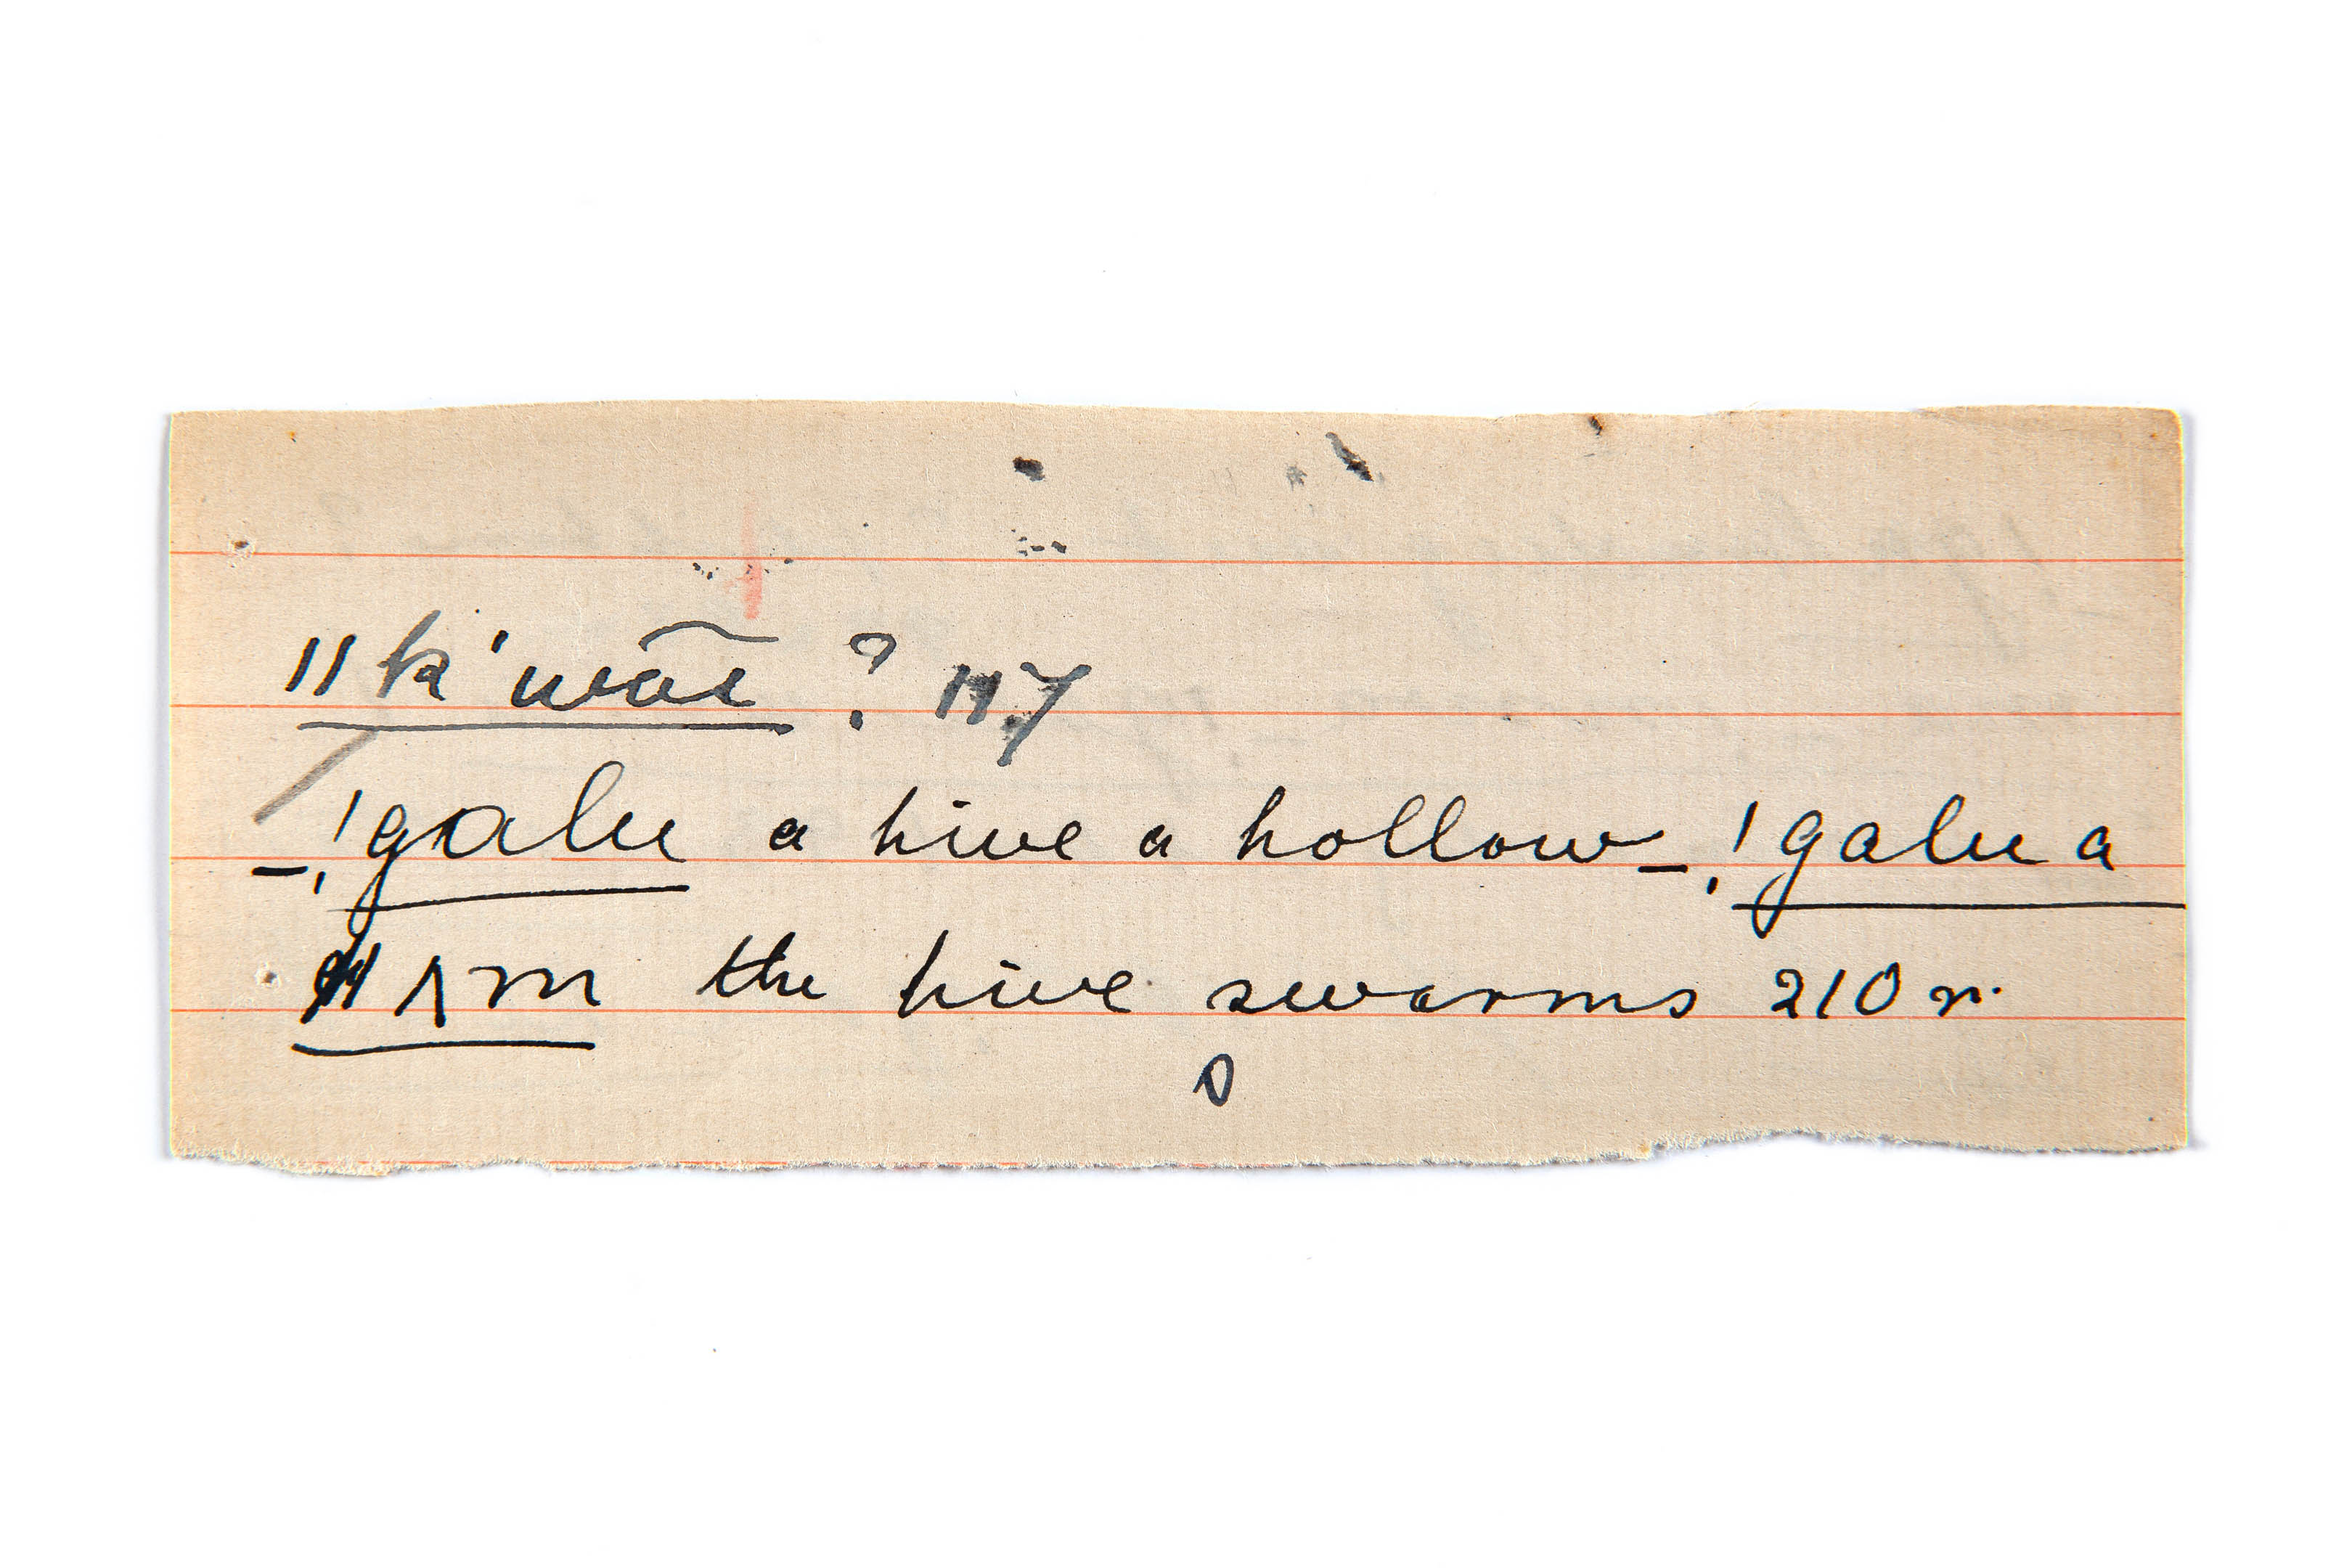 ǁk'wāē ? 117
_ǃgalu a hive a hollow _ǃgalu a
ʌm the hive swarms 210 r.